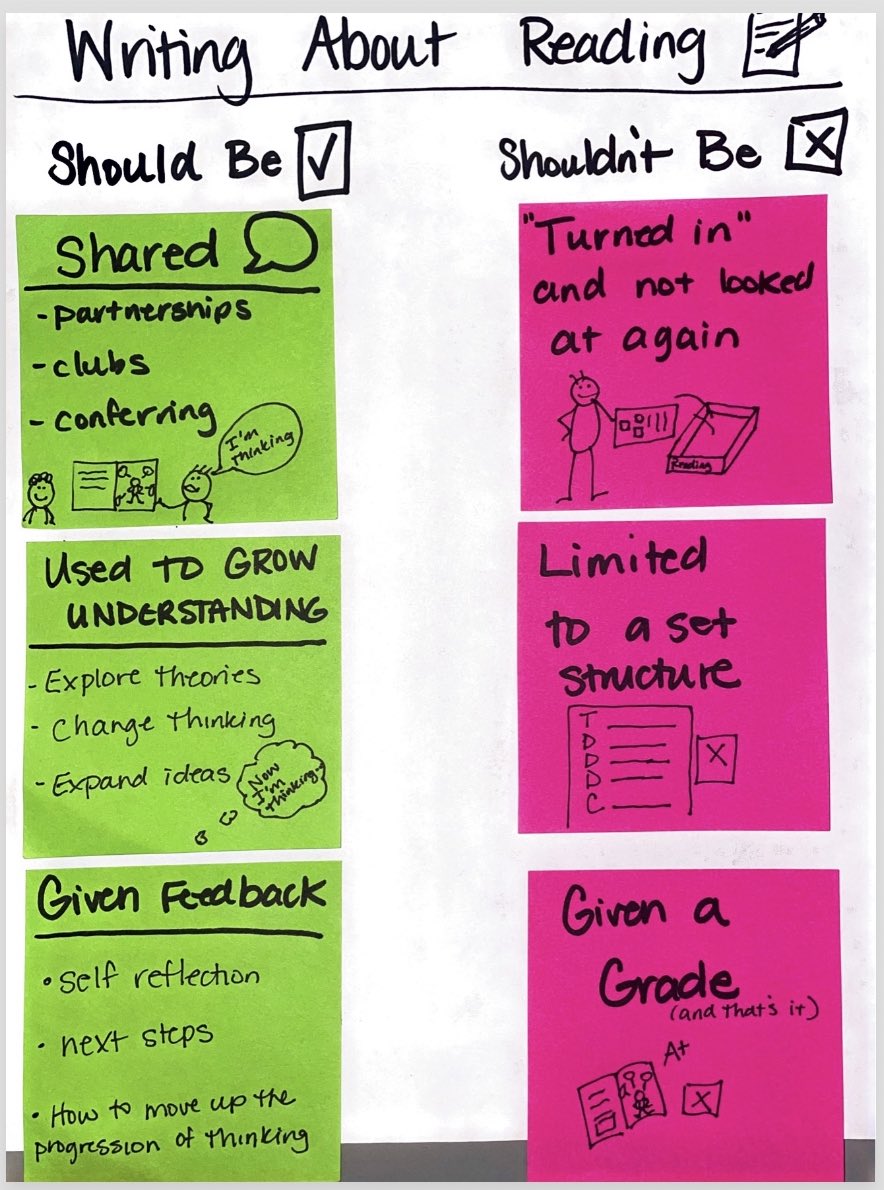 Writing About Reading
Should Be
Shared
- partnerships
- clubs
- conferring
I'm
thinking
Used TO GROW
UNDERSTANDING
- Explore theories
- Change thinking
- Expand ideas
Now
I'm
thinking...
Given Feedback
• self reflection
• next steps
• How to move up the
progression of thinking
Shouldn't Be
"Turned in"
and not looked
at again
Reading
Limited
to a set
structure
T
D
D
D
D
C
Given a
Grade
(and that's it)
A+